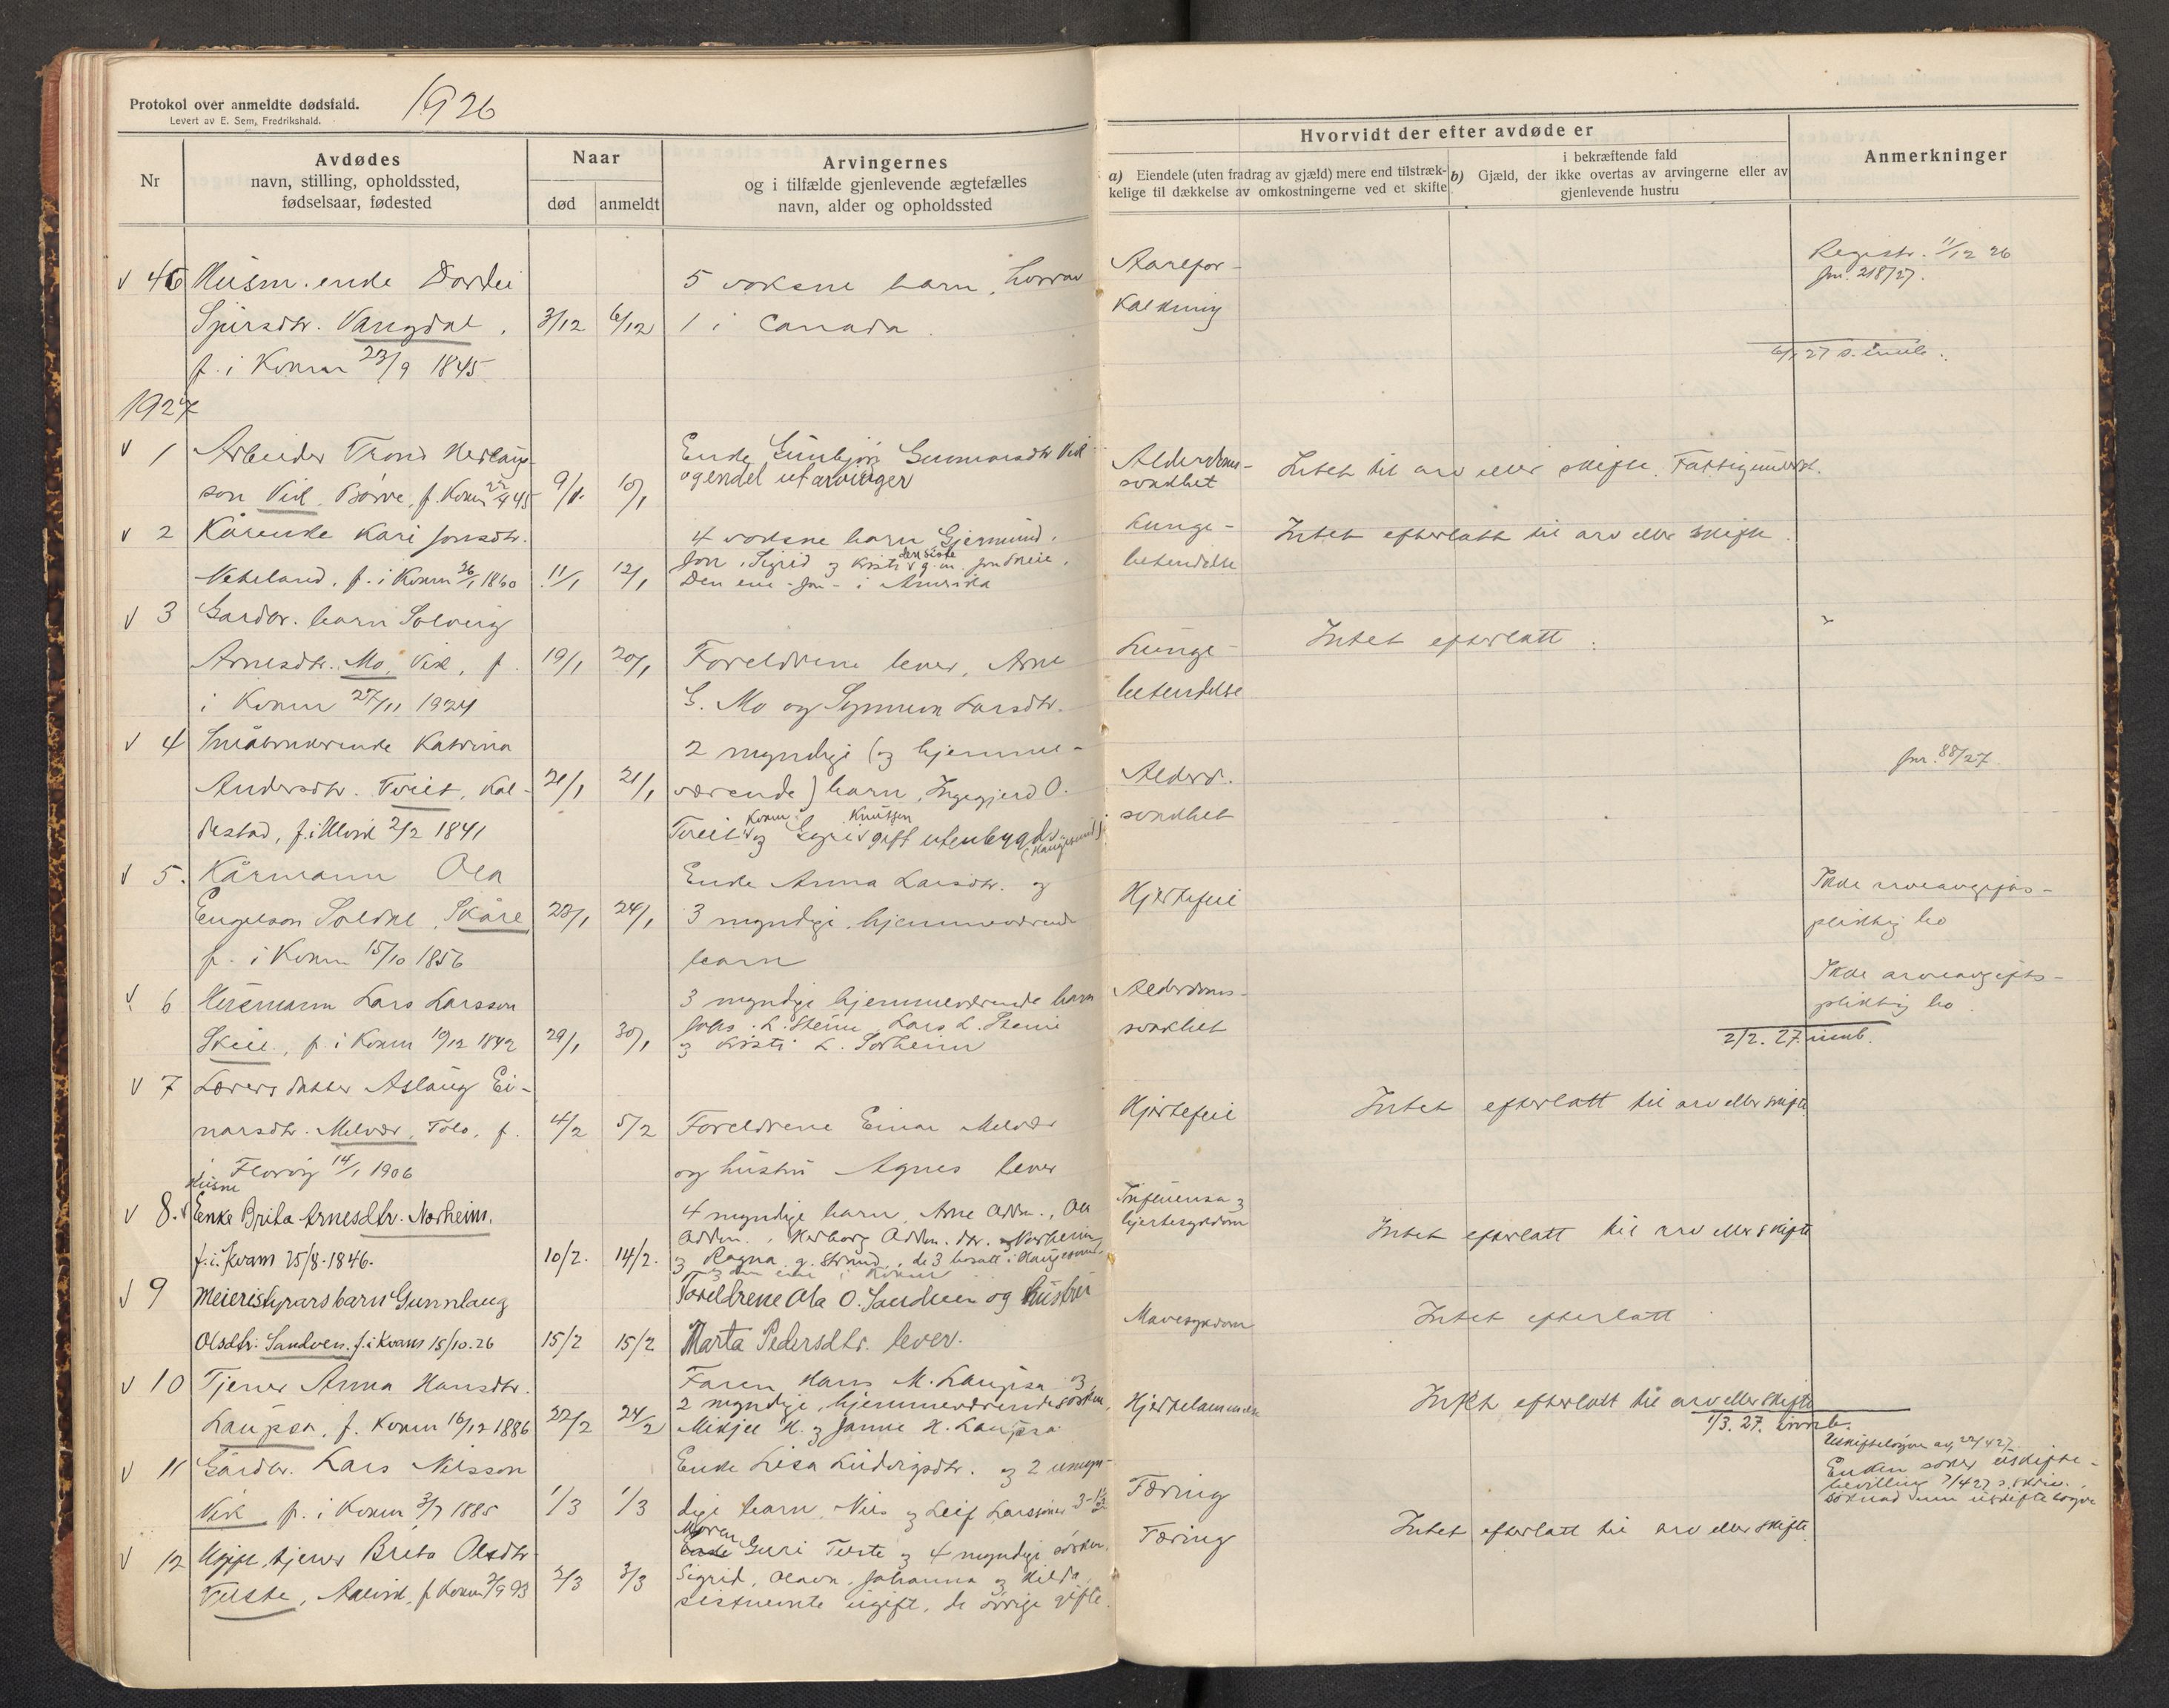 Protokol over anmeldte dødsfald.
Levert av E. Sem, Fredrikshald.
1926
Nr
Avdødes
navn, stilling, opholdssted,
fødselsaar, fødested
Naar
død
anmeldt
Arvingernes
og i tilfælde gjenlevende ægtefælles
navn, alder og opholdssted
Hvorvidt der efter avdøde er
a) Eiendele (uten fradrag av gjæld) mere end tilstræk-
kelige til dækkelse av omkostningerne ved et skifte
b) i bekræftende fald
Gjæld, der ikke overtas av arvingerne eller av
gjenlevende hustru
Anmerkninger
v 46 Husm. enke Dordei
Sjursdtr. Vangdal,
f. i Kvam 23/9 1845
3/12 6/12
5 voksne barn, hvorav
1 i Canada.
Aarefor-
kalkning
Registr. 11/12 26
Jnr. 218/27.
1927
v 1 Arbeider Trond Herlaug-
son Vik, Børve, f. Kvam 22/4 45
9/1. 10/1
Enke Gunbjør Gunnarsdtr Vik
og endel utarvinger
Alderdoms-
svakhet
Intet til arv eller skifte. Fattigunderst.
v 2 Kårenke Kari Jonsdtr.
Neteland, f. i Kvam 26/1 1860
11/1 12/1
4 voksne barn Gjermund,
Jon, Sigrid og Kristi den siste g. m. Jon Skeie,
Den ene - Jon - i Amerika
Lunge-
betendelse
Intet efterlatt til arv eller skifte.
v 3 Gardbr. barn Solveig
Arnesdtr. Mo, Vik, f.
i Kvam 27/11 1924
19/1 20/1
Foreldrene lever, Arne
G. Mo og Synneva Larsdtr.
Lunge-
betendelse
Intet efterlatt.
v 4 Småbrukerenke Katrina
Andersdtr. Tveit, Kal-
destad, f. i Ulvik 2/2 1841
21/1 21/1
2 myndige (og hjemme-
værende) barn, Ingegjerd O.
Tveit Kvam og Sigri Knutsen gift utenbygds
(Haugesund)
Alderd.
svakhet
Jnr. 88/27
v 5. Kårmann Ola
Engelson Soldal, Skåre
f. i Kvam 15/10 1856
23/1 24/1
Enke Anna Larsdtr. og
3 myndige, hjemmeværende
barn
Hjertefeil
Ikke arveavgifts-
pliktig bo
v 6 Husmann Lars Larsson
Skeie, f. i Kvam 10/12 1842
29/1 30/1
3 myndige hjemmeværende barn
Johs. L. Steine, Lars L. Steine
og Kristi L. Sørheim
Alderdoms-
svakhet
Ikke arveavgifts-
pliktig bo.
2/2. 27. innb.
v 7 Lærers datter Aslaug Ei-
narsdtr. Melvær, Tolo, f.
i Florvåg 14/1 1906
4/2 5/2
Foreldrene Einar Melvær
og hustru Agnes lever
Hjertefeil
Intet efterlatt til arv eller skifte
v 8. Husm Enke Brita Arnesdtr. Norheim.
f. i. Kvam 25/8-1846.
10/2. 14/2.
4 myndige barn, Arne Addm., Ola
Addm., Herborg Addm. dtr. Norheim
og Ragna g. Strand, de 3 bosatt i Haugesund
og den ene i Kvam
Influensa og
hjertesykdom
Intet efterlatt til arv eller skifte
v 9 Meieristyrars barn Gunnlaug
Olsdtr. Sandven. f. i Kvam 15/10.26
15/2 15/2
Foreldrene Ola O. Sandven og hustru
Marta Pedersdtr. lever.
Mavesykdom
Intet efterlatt
v 10 Tjener Anna Hansdtr.
Laupsa, f. Kvam 16/12 1886
22/2 24/2
Faren Hans M. Laupsa og
2 myndige, hjemmeværende søsken,
Mikjel H. og Janne H. Laupsa
Hjertelammelse
Intet efterlatt til arv eller skifte
1/3. 27. innb.
v 11 Gårdbr. Lars Nilsson
Vik f. i Kvam 3/7 1885
1/3 1/3
Enke Lisa Ludvigsdtr. og 2 umyn-
dige barn, Nils og Leif Larssøner
Tæring
Enken søker uskifte-
bevilling 7/4 27
v 12 Ugift tjener Brita Olsdtr
Teiste, Aalvik, f Kvam 2/9 93
2/3 3/3
Moren Guri Teiste og 4 myndige søsken,
Sigrid, Olava, Johanna og Hilda,
sistnevnte ugift, de øvrige gifte.
Tæring
Intet efterlatt til arv eller skifte